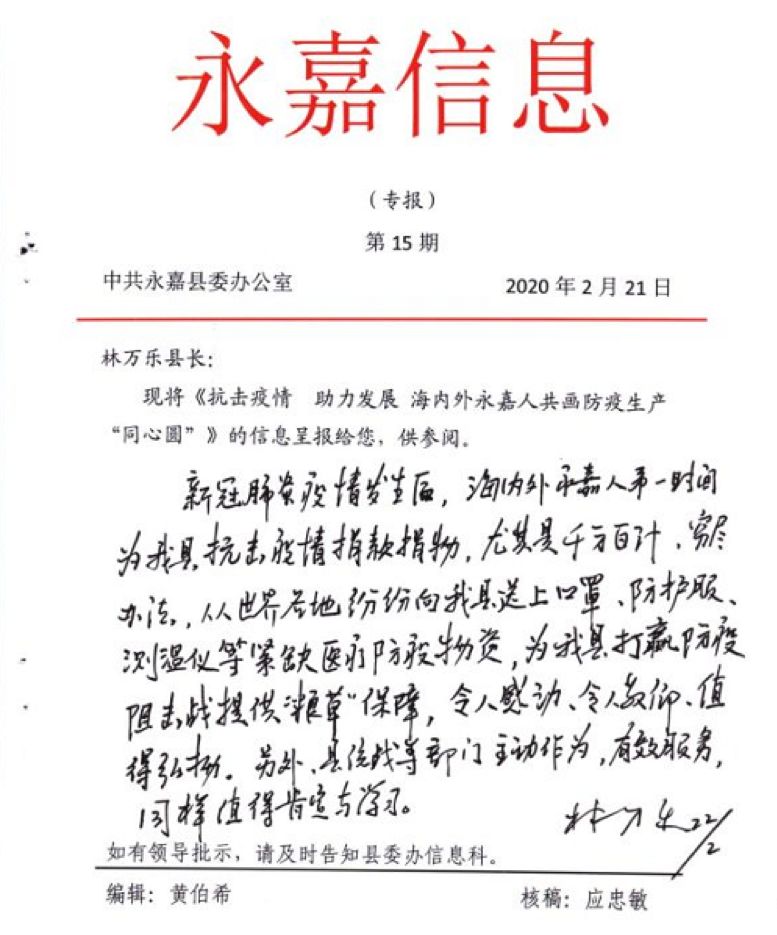 永嘉信息
（专报）
第 15 期
中共永嘉县委办公室 2020 年 2 月 21 日
林万乐县长：
现将《抗击疫情 助力发展 海内外永嘉人共画防疫生产
“同心圆”》的信息呈报给您，供参阅。
新冠肺炎疫情发生后，海内外永嘉人第一时间
为我县抗击疫情捐款捐物，尤其是千方百计、穷尽
办法，从世界各地纷纷向我县送上口罩、防护服、
测温仪等紧缺医疗防疫物资，为我县打赢防疫
阻击战提供“粮草”保障，令人感动、令人敬仰、值
得弘扬。另外，县统战等部门主动作为，有效服务，
同样值得肯定与学习。
林万乐 22/2
如有领导批示，请及时告知县委办信息科。
编辑：黄伯希 核稿：应忠敏